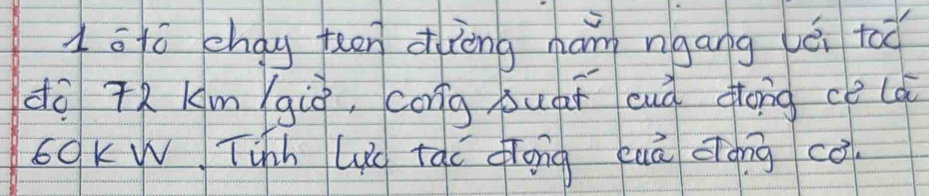 1 ôtô chạy trên đường nằm ngang với tốc
độ 72 km/giờ, công suất của động cơ là
60KW. Tính lực tác động của động cơ.